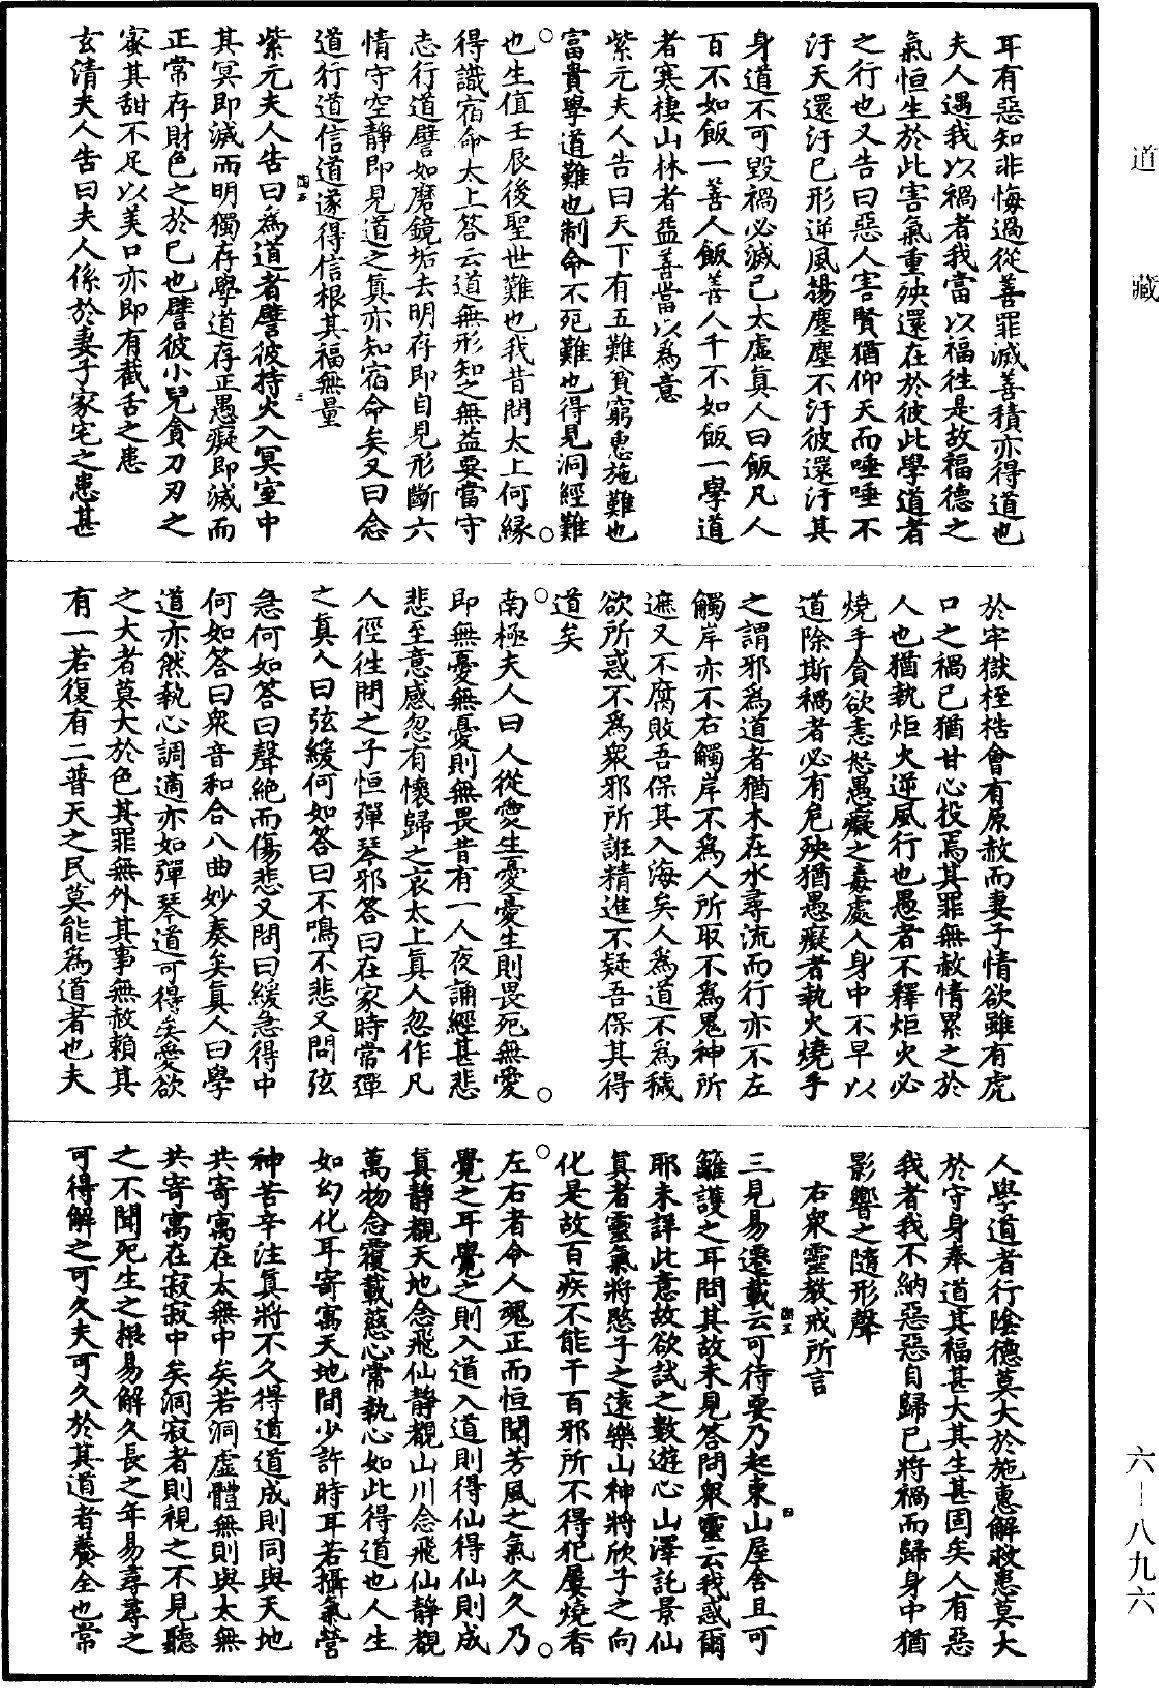 道藏
六—八九六
耳有惡知非悔過從善罪滅善積亦得道也
夫人遇我以禍者我當以福往是故福德之
氣恒生於此害氣重殃還在於彼此學道者
之行也又告曰惡人害賢猶仰天而唾唾不
汙天還汙己形逆風揚塵塵不汙彼還汙其
身道不可毀禍必滅己太虛真人曰飯凡人
百不如飯一善人飯善人千不如飯一學道
者寒棲山林者益善當以為意
紫元夫人告曰天下有五難貧窮惠施難也
富貴學道難也制命不死難也得見洞經難
也生值壬辰後聖世難也我昔問太上何緣
得識宿命太上答云道無形知之無益要當守
志行道譬如磨鏡垢去明存即自見形斷六
情守空靜即見道之真亦知宿命矣又曰念
道行道信道遂得信根其福無量
紫元夫人告曰為道者譬彼持火入冥室中
其冥即滅而明獨存學道存正愚癡即滅而
正常存財色之於己也譬彼小兒貪刀刃之
蜜其甜不足以美口亦即有截舌之患
玄清夫人告曰夫人係於妻子家宅之患甚
於牢獄桎梏會有原赦而妻子情欲雖有虎
口之禍己猶甘心投焉其罪無赦情累之於
人也猶執炬火逆風行也愚者不釋炬火必
燒手貪欲恚怒愚癡之毒處人身中不早以
道除斯禍者必有危殃猶愚癡者執火燒手
之謂邪為道者猶木在水尋流而行亦不左
觸岸亦不右觸岸不為人所取不為鬼神所
遮又不腐敗吾保其入海矣人為道不為穢
欲所惑不為眾邪所誑精進不疑吾保其得
道矣
南極夫人曰人從愛生憂憂生則畏死無愛
即無憂無憂則無畏昔有一人夜誦經甚悲
悲至意感忽有懷歸之哀太上真人忽作凡
人徑往問之子恒彈琴邪答曰在家時常彈
之真人曰弦緩何如答曰不鳴不悲又問弦
急何如答曰聲絕而傷悲又問曰緩急得中
何如答曰眾音和合八曲妙奏矣真人曰學
道亦然執心調適亦如彈琴道可得矣愛欲
之大者莫大於色其罪無外其事無赦賴其
有一若復有二普天之民莫能為道者也夫
人學道者行陰德莫大於施惠解救患莫大
於守身奉道其福甚大其生甚固矣人有惡
我者我不納惡惡自歸己將禍而歸身中猶
影響之隨形聲
右眾靈教戒所言
三見易遷載云可待要乃起東山屋舍且可
籬護之耳問其故未見答問眾靈云我惑爾
耶未詳此意故欲試之數遊心山澤託景仙
真者靈氣將愍子之遠樂山神將欣子之向
化是故百疾不能干百邪所不得犯屢燒香
左右者命人魂正而恒聞芳風之氣久久乃
覺之耳覺之則入道入道則得仙得仙則成
真靜觀天地念飛仙靜觀山川念飛仙靜觀
萬物念覆載慈心常執心如此得道也人生
如幻化耳寄寓天地間少許時耳若攝氣營
神苦辛注真將不久得道道成則同與天地
共寄寓在太無中矣若洞虛體無則與太無
共寄寓在寂寂中矣洞寂者則視之不見聽
之不聞死生之根易解久長之年易尋尋之
可得解之可久夫可久於其道者養全也常